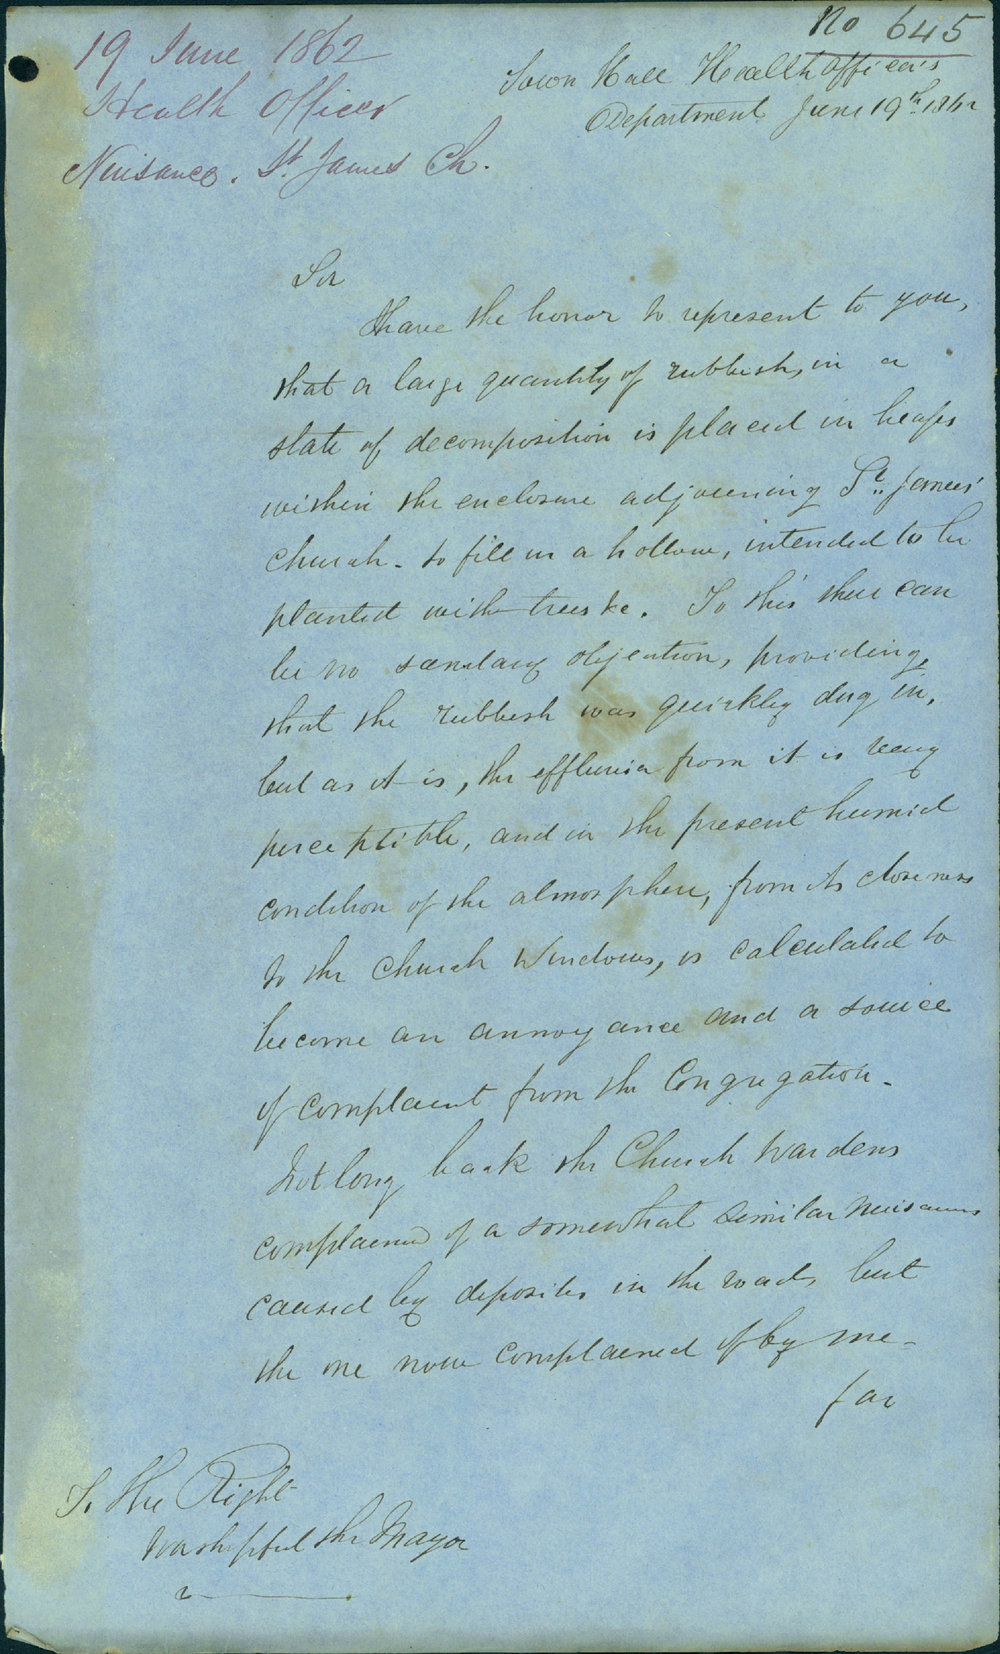 No 645
19 June 1862
Health Officer
Nuisance. St. James Ch.
Town Hall Health Officer's
Department June 19th. 1862
Sir
I have the honor to represent to you,
that a large quantity of rubbish, in a
state of decomposition is placed in heaps
within the enclosure adjoining St. James'
Church - to fill in a hollow, intended to be
planted with trees &c. To this there can
be no sanitary objection, providing
that the rubbish was quickly dug in,
but as it is, the effluvia from it is very
perceptible, and in the present humid
condition of the atmosphere, from its closeness
to the Church Windows, is calculated to
become an annoyance and a source
of complaint from the Congregation -
Not long back the Church Wardens
complained of a somewhat similar nuisance
caused by deposits in the road, but
the one now complained of by me -
far
To the Right
Worshipful the Mayor